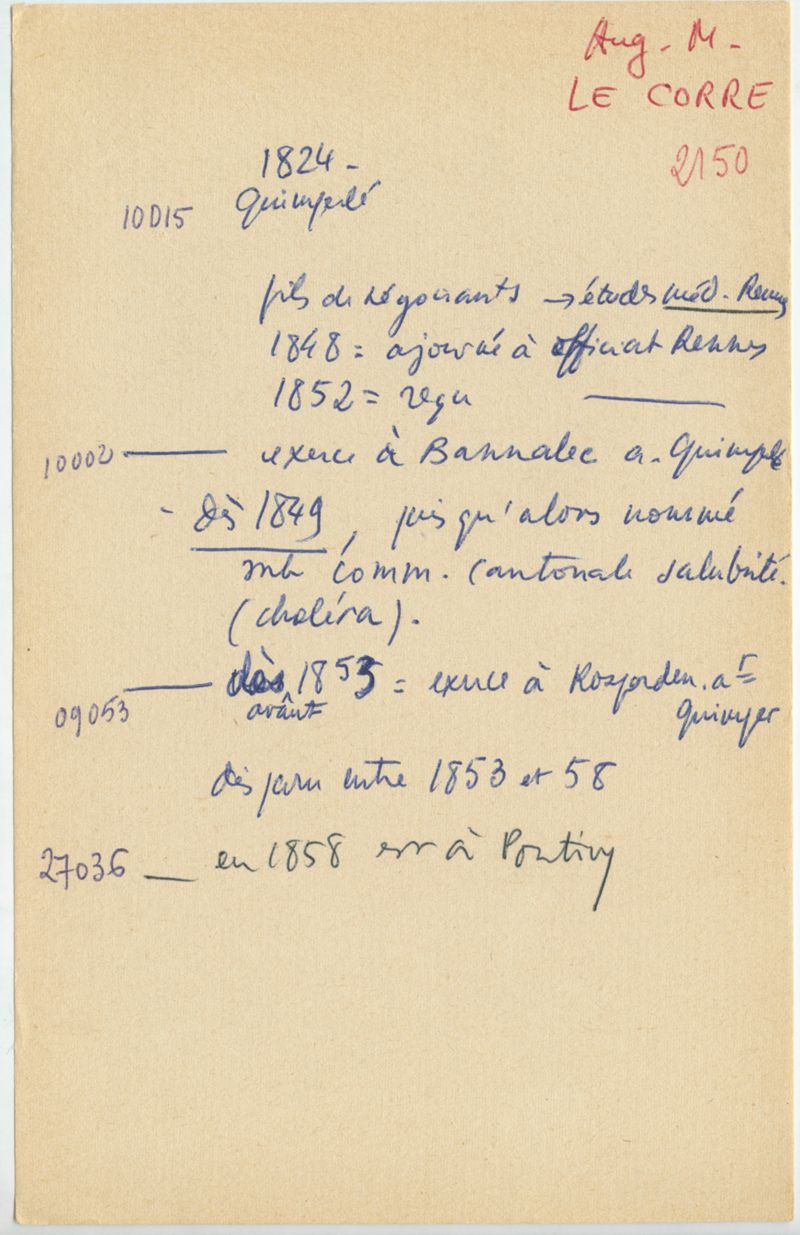 Aug. M.
LE CORRE
2150
1824 -
10D15 Quimperlé
fils de négociants → études méd. Rennes
1848 = ajourné à officiat Rennes
1852 = reçu ———
10002 —— exerce à Bannalec a. Quimperlé
- dès 1849, puisqu'alors nommé
mb Comm. Cantonale salubrité.
(choléra).
09053 —— dès 1853 = exerce à Rosporden. arr
avant Quimper
disparu entre 1853 et 58
27036 — en 1858 est à Pontivy